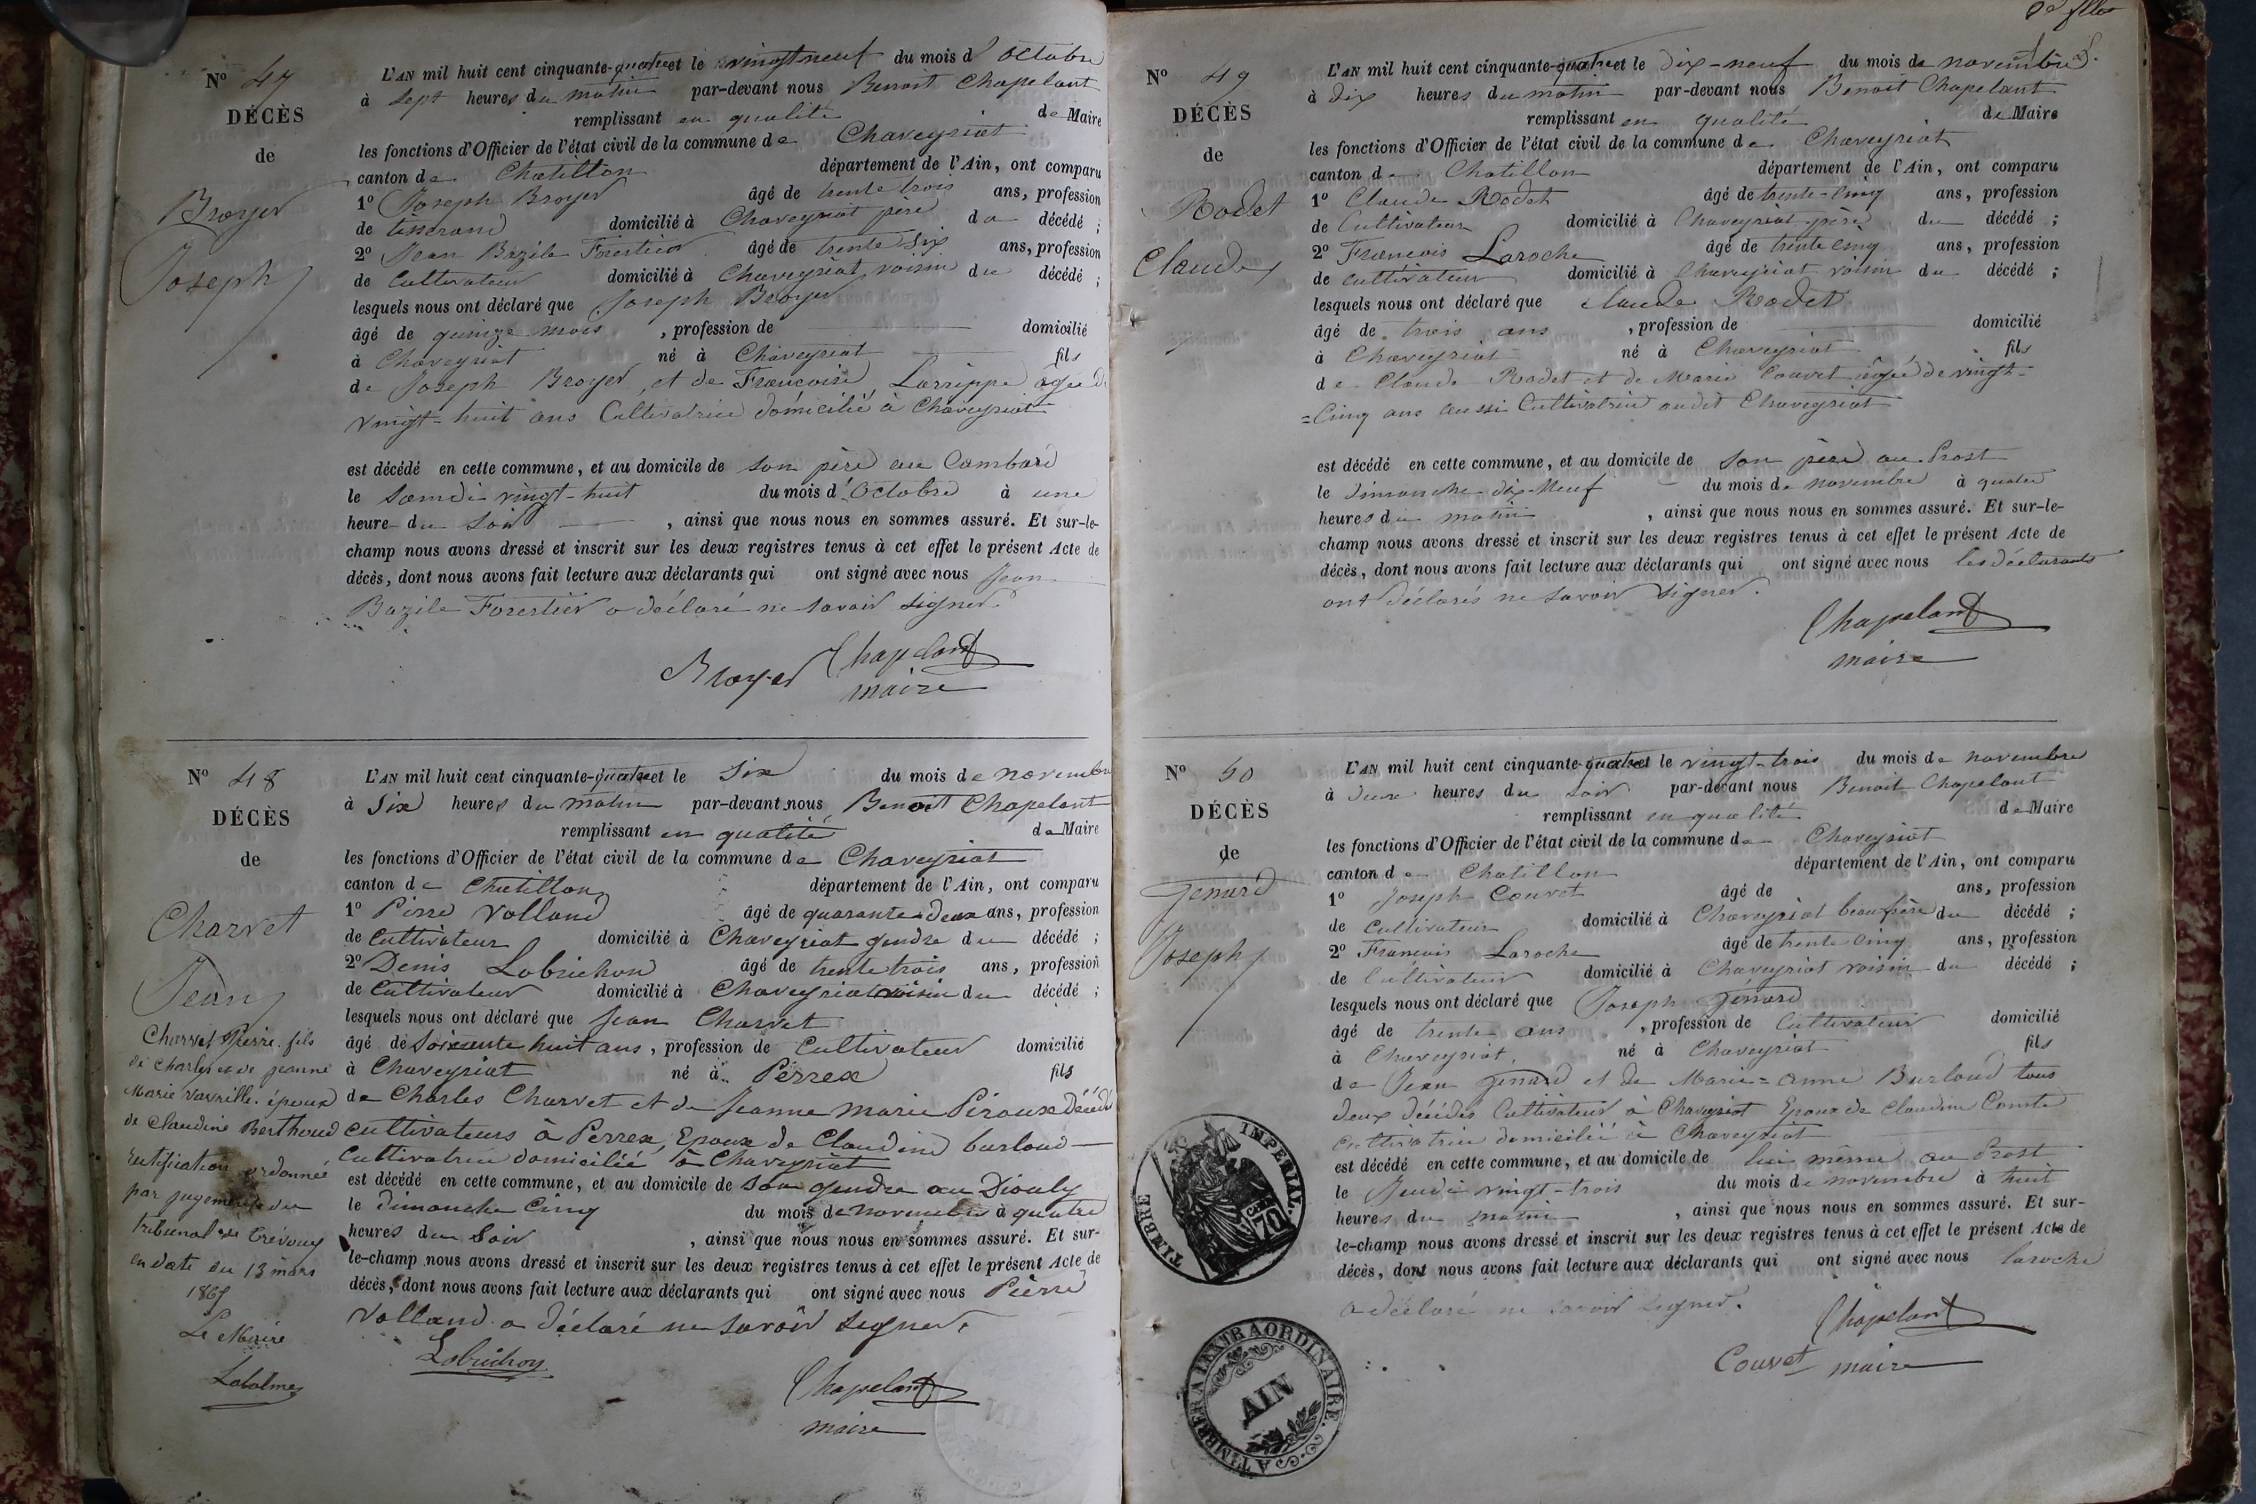 Nº 47
DÉCÈS
de
Broyer
Joseph
L'AN mil huit cent cinquante-quatre et le vingt neuf du mois d'octobre
à sept heures du matin par-devant nous Benoit Chapelant
remplissant en qualité de Maire
les fonctions d'Officier de l'état civil de la commune de Chaveyriat
canton de Chatillon département de l'Ain, ont comparu
1º Joseph Broyer âgé de trente trois ans, profession
de tisserand domicilié à Chaveyriat père du décédé ;
2º Jean Bazile Forestier âgé de trente six ans, profession
de Cultivateur domicilié à Chaveyriat voisin du décédé ;
lesquels nous ont déclaré que Joseph Broyer
âgé de quinze mois , profession de domicilié
à Chaveyriat né à Chaveyriat fils
de Joseph Broyer et de Francoise Larrippe agée de
vingt-huit ans Cultivatrice domicilié à Chaveyriat
est décédé en cette commune, et au domicile de son père au Cambard
le samdi vingt-huit du mois d'Octobre à une
heure du soir , ainsi que nous nous en sommes assuré. Et sur-le-
champ nous avons dressé et inscrit sur les deux registres tenus à cet effet le présent Acte de
décès, dont nous avons fait lecture aux déclarants qui ont signé avec nous Jean
Bazile Forestier a déclaré ne savoir signer.
Broyer Chapelant
maire
Nº 48
DÉCÈS
de
Charvet
Jean
Charvet Pierre fils
de Charles et de jeanne
Marie Vavrille. époux
de Claudine Berthoud
rectification ordonnée
par jugement du
tribunal de Trévoux
en date du 13 mars
Le Maire
Labalme
L'AN mil huit cent cinquante-quatre et le Six du mois de novembre
à Six heures du matin par-devant nous Benoit Chapelant
remplissant en qualité de Maire
les fonctions d'Officier de l'état civil de la commune de Chaveyriat
canton de Chatillon département de l'Ain, ont comparu
1º Pierre Volland âgé de quarante-deux ans, profession
de Cultivateur domicilié à Chaveyriat gendre du décédé ;
2º Denis Lobrichon âgé de trente trois ans, profession
de Cultivateur domicilié à Chaveyriat voisin du décédé ;
lesquels nous ont déclaré que Jean Charvet
âgé de Soixente huit ans, profession de Cultivateur domicilié
à Chaveyriat né à Perrex fils
de Charles Charvet et de Jeanne Marie Péroux Décédé
Cultivateurs à Perrex, Epoux de Claudine burloud
Cultivatrice domiciliée à Chaveyriat
est décédé en cette commune, et au domicile de Son gendre au Diouly
le dimanche Cinq du mois de novembre à quatre
heures du Soir , ainsi que nous nous en sommes assuré. Et sur-
le-champ nous avons dressé et inscrit sur les deux registres tenus à cet effet le présent Acte de
décès, dont nous avons fait lecture aux déclarants qui ont signé avec nous Pierre
Volland a déclaré ne savoir signer.
Lobrichon
Chapelant
maire
Nº 49
DÉCÈS
de
Rodet
Claude
L'AN mil huit cent cinquante-quatre et le dix-neuf du mois de novembre
à dix heures du matin par-devant nous Benoit Chapelant
remplissant en qualité de Maire
les fonctions d'Officier de l'état civil de la commune de Chaveyriat
canton de Chatillon département de l'Ain, ont comparu
1º Claude Rodet âgé de trente-cinq ans, profession
de Cultivateur domicilié à Chaveyriat père du décédé ;
2º Francois Laroche âgé de trente cinq ans, profession
de cultivateur domicilié à Chaveyriat voisin du décédé ;
lesquels nous ont déclaré que Claude Rodet
âgé de trois ans , profession de domicilié
à Chaveyriat né à Chaveyriat fils
de Claude Rodet et de Marie Couvet agée de vingt-
=Cinq ans aussi Cultivatrice audit Chaveyriat
est décédé en cette commune, et au domicile de son père au Prost
le dimanche dix-Neuf du mois de novembre à quatre
heures du matin , ainsi que nous nous en sommes assuré. Et sur-le-
champ nous avons dressé et inscrit sur les deux registres tenus à cet effet le présent Acte de
décès, dont nous avons fait lecture aux déclarants qui ont signé avec nous les déclarants
ont déclarés ne savoir signer.
Chapelant
maire
Nº 50
DÉCÈS
de
Genard
Joseph
L'AN mil huit cent cinquante-quatre et le vingt-trois du mois de novembre
à deux heures du soir par-devant nous Benoit Chapelant
remplissant en qualité de Maire
les fonctions d'Officier de l'état civil de la commune de Chaveyriat
canton de Chatillon département de l'Ain, ont comparu
1º Joseph Couvet âgé de ans, profession
de Cultivateur domicilié à Chaveyriat beaufrère du décédé ;
2º Francois Laroche âgé de trente cinq ans, profession
de Cultivateur domicilié à Chaveyriat voisin du décédé ;
lesquels nous ont déclaré que Joseph Génard
âgé de trente ans , profession de Cultivateur domicilié
à Chaveyriat, né à Chaveyriat fils
de Jean Genard et de Marie=anne Burloud tous
deux décédés Cultivateur à Chaveyriat Epoux de Claudine Comte
Cultivatrice domiciliée à Chaveyriat
est décédé en cette commune, et au domicile de lui même au Prost
le Jeudi vingt-trois du mois de novembre à huit
heures du matin , ainsi que nous nous en sommes assuré. Et sur-
le-champ nous avons dressé et inscrit sur les deux registres tenus à cet effet le présent Acte de
décès, dont nous avons fait lecture aux déclarants qui ont signé avec nous laroche
a déclaré ne savoir signer.
Chapelant
Couvet maire
TIMBRE IMPERIAL
70
A TIMBRER A L'EXTRAORDINAIRE.
AIN